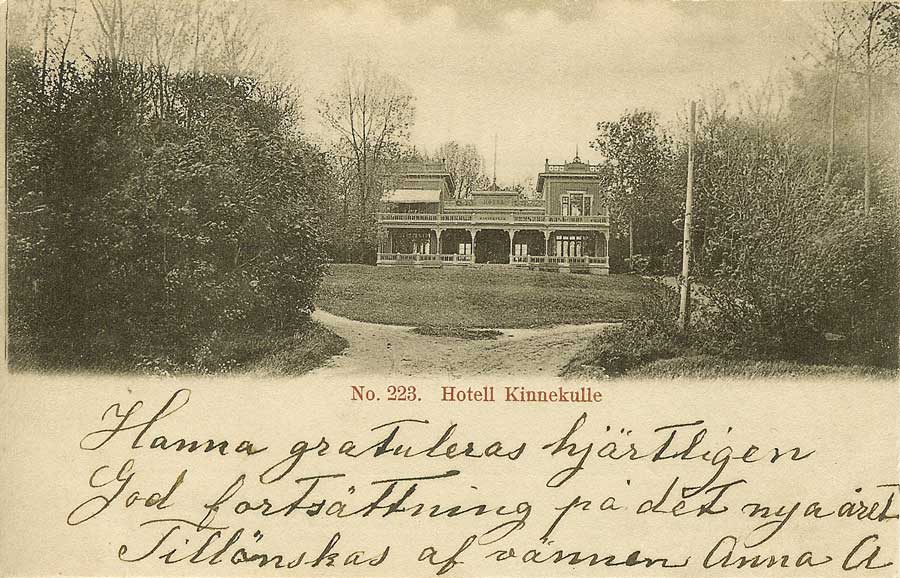 No. 223. Hotell Kinnekulle
Hanna gratuleras hjärtligen
God fortsättning på det nya året
Tillönskas af vännen Anna A